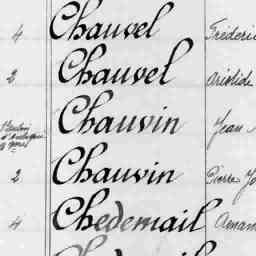 4 Chauvel Frédéric
2 Chauvel Aristide
Chauvin Jean
2 Chauvin Pierre
4 Chedemail Amam